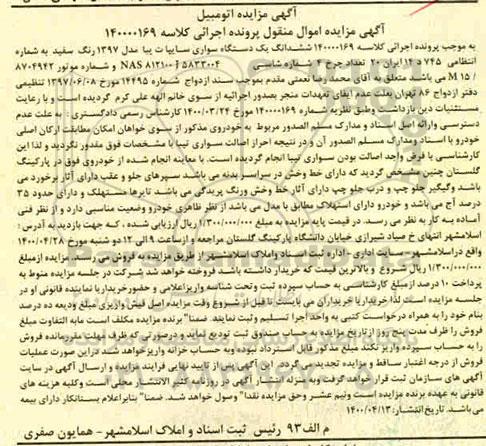 آگهی مزایده اتومبیل
آگهی مزایده اموال منقول پرونده اجرائی کلاسه ۱۴۰۰۰۰۱۶۹
به موجب پرونده اجرائی کلاسه ۱۴۰۰۰۰۱۶۹ ششدانگ یک دستگاه سواری سایپا تیبا مدل ۱۳۹۷ رنگ سفید به شماره
انتظامی ۷۴۵ د ۱۴ ایران ۲۰ تعداد چرخ ۴ شماره شاسی NAS ۸۱۲۱۰۰ J ۵۸۳۳۰۰۴ و شماره موتور ۸۷۰۴۹۴۲
M ۱۵ / می باشد متعلق به آقای محمد رضا نعمتی مقدم بموجب سند ازدواج شماره ۱۴۴۹۵ مورخ ۱۳۹۷/۰۶/۰۸ تنظیمی
دفتر ازدواج ۸۶ تهران بعلت عدم ایفای تعهدات منجر بصدور اجرائیه از سوی خانم الهه علی کرم گردیده است و با رعایت
مستثنیات دین بازداشت وطبق نظریه شماره ۱۴۰۰۰۰۱۶۹ مورخ ۱۴۰۰/۰۳/۲۴ کارشناس رسمی دادگستری : به علت عدم
دسترسی وارائه اصل اسناد و مدارک مسلم الصدور مربوط به خودروی مذکور از سوی خواهان امکان مطابقت ارکان اصلی
خودرو با اسناد ومدارک مسلم الصدور آن و در نتیجه احراز اصالت سواری تیبا با مشخصات فوق مقدور نگردید و لذا این
کارشناسی با فرض واحد اصالت بودن سواری تیبا انجام گردیده است. با معاینه انجام شده از خودروی فوق در پارکینگ
گلستان چنین مشخص گردید که دارای خط وخش در سراسر بدنه می باشد سپرهای جلو و عقب دارای آثار برخورد می
باشد وگلگیر جلو چپ و درب جلو چپ دارای آثار خط وخش ورنگ پریدگی می باشد تایرها مستهلک و دارای حدود ۳۵
درصد آج می باشد و خودرو دارای استهلاک مطابق با مدل می باشد از نظر ظاهری خودرو وضعیت مناسبی دارد و از نظر فنی
آماده به کار به نظر می رسد. در قیمت پایه مزایده به مبلغ ۱/۳۰۰/۰۰۰/۰۰۰ ریال ارزیابی شده ، که جهت بازدید به آدرس :
اسلامشهر انتهای خ صیاد شیرازی خیابان دانشگاه پارکینگ گلستان مراجعه و ازساعت ۹ الی ۱۲ دو شنبه مورخ ۱۴۰۰/۰۴/۲۸
واقع دراسلامشهر - سایت اداری - اداره ثبت اسناد واملاک اسلامشهر از طریق مزایده به فروش می رسد. مزایده ازمبلغ
۱/۳۰۰/۰۰۰/۰۰۰ ریال شروع و بالاترین قیمت که خریدار داشته باشد فروخته خواهد شد شرکت در جلسه مزایده منوط به
پرداخت ۱۰ درصد ازمبلغ کارشناسی به حساب سپرده ثبت وتحت شناسه واریزاعلامی و حضورخریداریا نماینده قانونی او در
جلسه مزایده است لذا خریداریا خریداران می بایست تا قبل از شروع وقت مزایده اصل فیش واریزی مبلغ ودیعه ده درصد
بنام خود را به همراه درخواست کتبی به واحد اجرا تسلیم وثبت نمایند. ضمنا" برنده مزایده مکلف است مابه التفاوت مبلغ
فروش را ظرف مدت پنج روز از تاریخ مزایده به حساب صندوق ثبت تودیع نماید و درصورتی که ظرف مهلت مقرر مانده فروش
را به حساب سپرده واریز نکند مبلغ مذکور قابل استرداد نبوده وبه حساب خزانه واریزخواهد شد دراین صورت عملیات
فروش از درجه اعتبار ساقط و مزایده تجدید می گردد. این آگهی پس از تایید نهایی فرایند مزایده و ارسال آگهی در سایت
آگهی های سازمان ثبت قرار خواهد گرفت وبه منزله انتشار آگهی در روزنامه کثیر الانتشار محلی است وکلیه هزینه های
قانونی به عهده برنده مزایده است ونیم عشر وحق مزایده نقدا" وصول خواهد شد. ضمنا" بنابراعلام بستانکار دارای بیمه
می باشد. تاریخ انتشار: ۱۴۰۰/۰۴/۱۳
م الف ۹۳ رئیس ثبت اسناد و املاک اسلامشهر - همایون صفری